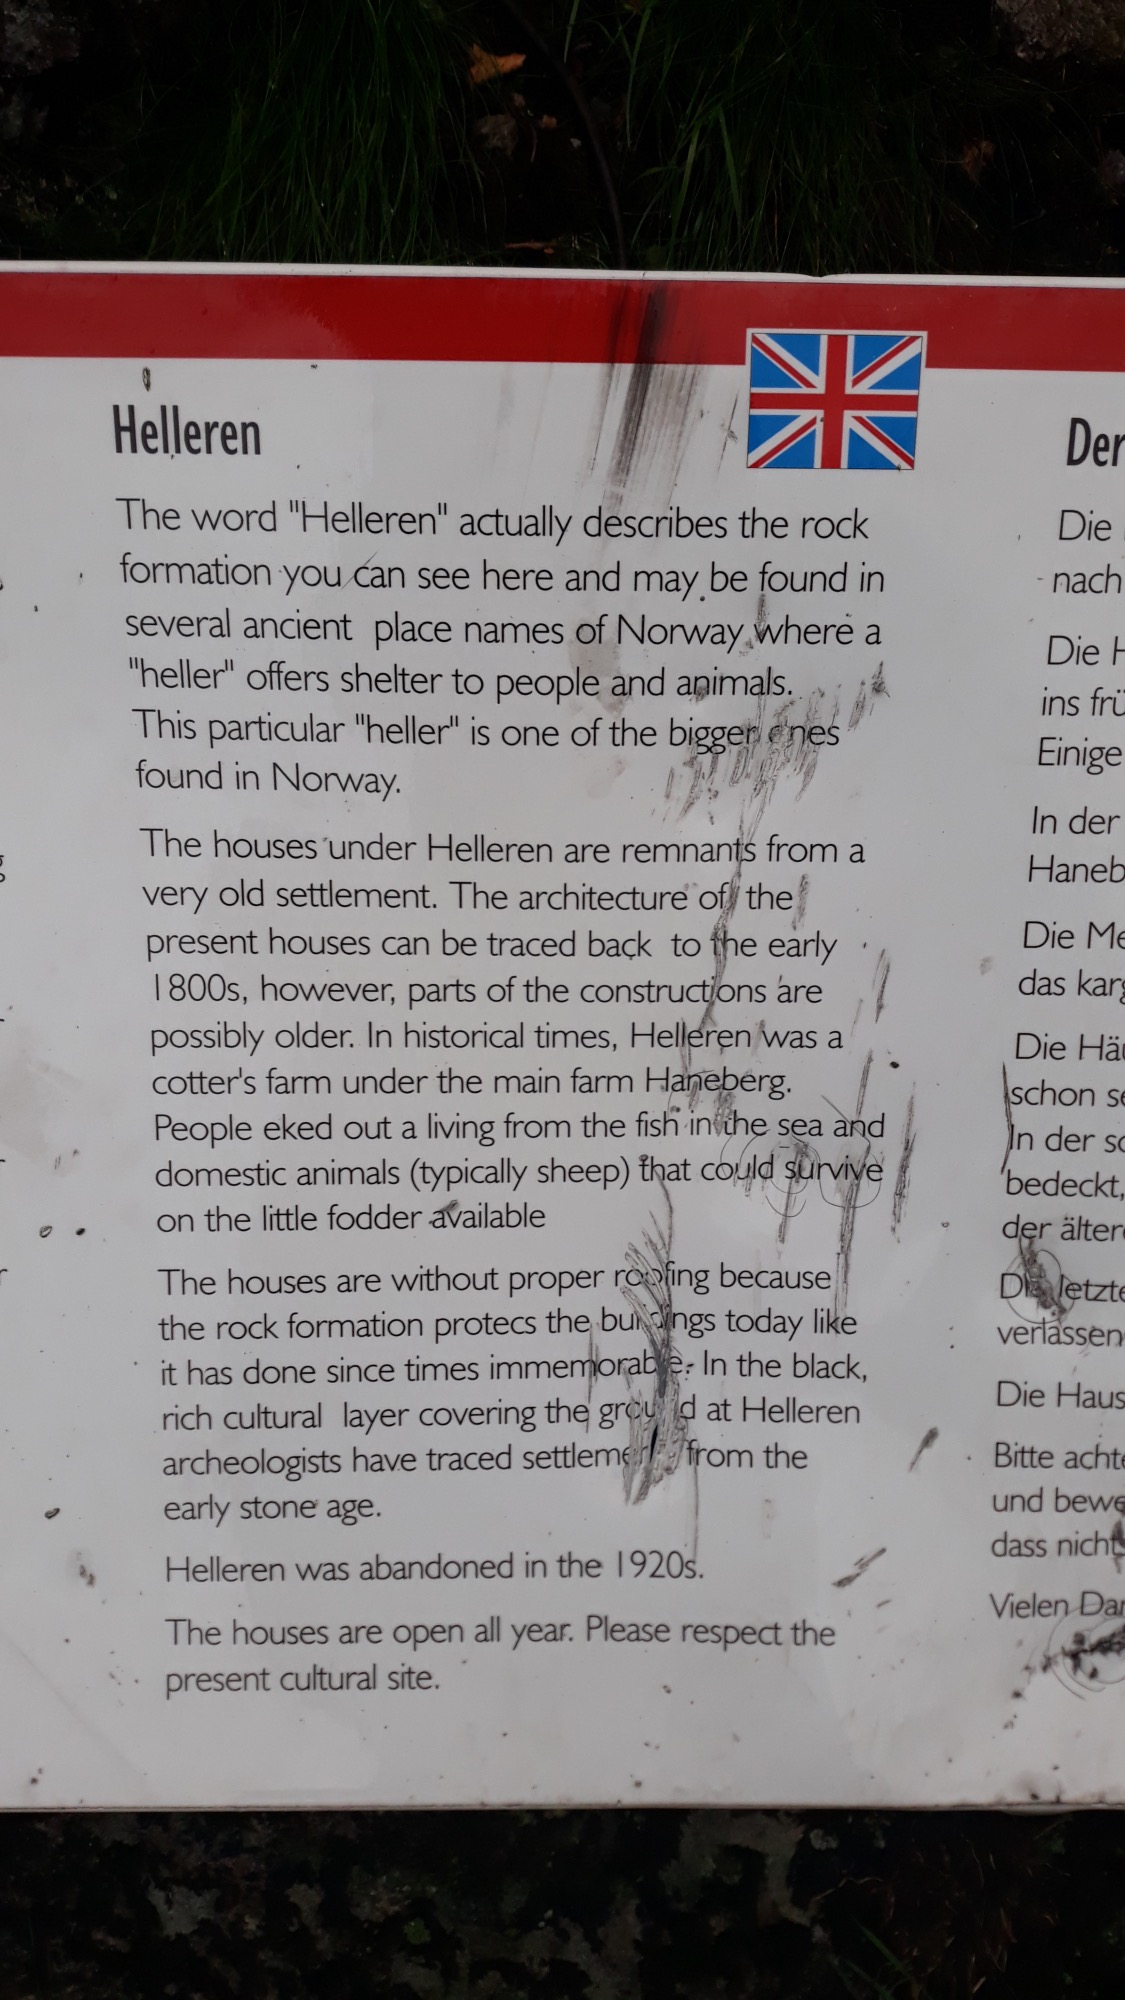 Helleren
The word "Helleren" actually describes the rock
formation you can see here and may be found in
several ancient place names of Norway where a
"heller" offers shelter to people and animals.
This particular "heller" is one of the bigger ones
found in Norway.
The houses under Helleren are remnants from a
very old settlement. The architecture of the
present houses can be traced back to the early
1800s, however, parts of the constructions are
possibly older. In historical times, Helleren was a
cotter's farm under the main farm Haneberg.
People eked out a living from the fish in the sea and
domestic animals (typically sheep) that could survive
on the little fodder available
The houses are without proper roofing because
the rock formation protecs the buildings today like
it has done since times immemorable. In the black,
rich cultural layer covering the ground at Helleren
archeologists have traced settlement from the
early stone age.
Helleren was abandoned in the 1920s.
The houses are open all year. Please respect the
present cultural site.
Der
Die
nach
Die H
ins frü
Einige
In der
Haneb
Die Me
das karg
Die Häu
schon se
In der sc
bedeckt,
der ältere
Die letzte
verlassen
Die Haus
Bitte achte
und bewe
dass nicht
Vielen Dan